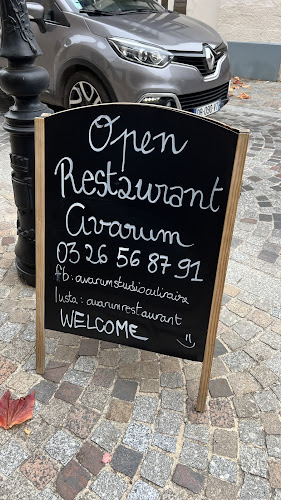 Open
Restaurant
Avarum
03 26 56 87 91
fb : avarumstudioculinaire
Insta : avarumrestaurant
WELCOME